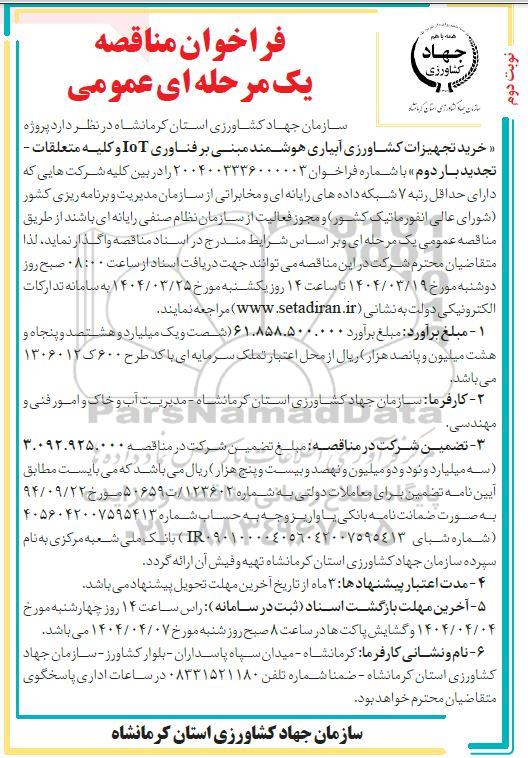 نوبت دوم
همه با هم
جهاد
کشاورزی
سازمان جهاد کشاورزی استان کرمانشاه
فراخوان مناقصه
یک مرحله ای عمومی
سازمان جهاد کشاورزی استان کرمانشاه در نظر دارد پروژه
« خرید تجهیزات کشاورزی آبیاری هوشمند مبنی بر فناوری IoT و کلیه متعلقات -
تجدید بار دوم» با شماره فراخوان ۲۰۰۴۰۰۳۳۳۶۰۰۰۰۰۳ را در بین کلیه شرکت هایی که
دارای حداقل رتبه ۷ شبکه داده های رایانه ای و مخابراتی از سازمان مدیریت و برنامه ریزی کشور
(شورای عالی انفورماتیک کشور) و مجوز فعالیت از سازمان نظام صنفی رایانه ای باشند از طریق
مناقصه عمومی یک مرحله ای و بر اساس شرایط مندرج در اسناد مناقصه واگذار نماید، لذا
متقاضیان محترم شرکت در این مناقصه می توانند جهت دریافت اسناد از ساعت ۰۸:۰۰ صبح روز
دوشنبه مورخ ۱۴۰۴/۰۳/۱۹ تا ساعت ۱۴ روز یکشنبه مورخ ۱۴۰۴/۰۳/۲۵ به سامانه تدارکات
الکترونیکی دولت به نشانی (www.setadiran.ir) مراجعه نمایند.
۱- مبلغ برآورد: مبلغ برآورد ۶۱.۸۵۸.۵۰۰.۰۰۰ (شصت و یک میلیارد و هشتصد و پنجاه و
هشت میلیون و پانصد هزار) ریال از محل اعتبار تملک سرمایه ای با کد طرح ۶۰۰ک۱۳۰۶۰۱۲
می باشد.
۲- کارفرما: سازمان جهاد کشاورزی استان کرمانشاه -مدیریت آب و خاک و امور فنی و
مهندسی.
۳- تضمین شرکت در مناقصه: مبلغ تضمین شرکت در مناقصه ۳.۰۹۲.۹۲۵.۰۰۰
(سه میلیارد و نود و دو میلیون و نهصد و بیست و پنج هزار) ریال می باشد که می بایست مطابق
آیین نامه تضمین برای معاملات دولتی به شماره ۱۲۳۴۰۲/ت۵۰۶۵۹ مورخ ۹۴/۰۹/۲۲
به صورت ضمانت نامه بانکی یا واریز وجه به حساب شماره ۴۰۵۶۰۴۲۰۰۷۵۹۵۴۱۳
(شماره شبای IR۰۹۰۱۰۰۰۰۴۰۵۶۰۴۲۰۰۷۵۹۵۴۱۳) بانک ملی شعبه مرکزی به نام
سپرده سازمان جهاد کشاورزی استان کرمانشاه تهیه و فیش آن ارائه گردد.
۴- مدت اعتبار پیشنهادها: ۳ ماه از تاریخ آخرین مهلت تحویل پیشنهاد می باشد.
۵- آخرین مهلت بازگشت اسناد (ثبت در سامانه): راس ساعت ۱۴ روز چهارشنبه مورخ
۱۴۰۴/۰۴/۰۴ و گشایش پاکت ها در ساعت ۸ صبح روز شنبه مورخ ۱۴۰۴/۰۴/۰۷ می باشد.
۶- نام و نشانی کارفرما: کرمانشاه -میدان سپاه پاسداران -بلوار کشاورز- سازمان جهاد
کشاورزی استان کرمانشاه - ضمنا شماره تلفن ۰۸۳۳۱۵۲۱۱۸۰ در ساعات اداری پاسخگوی
متقاضیان محترم خواهد بود.
سازمان جهاد کشاورزی استان کرمانشاه
ParsNamadData